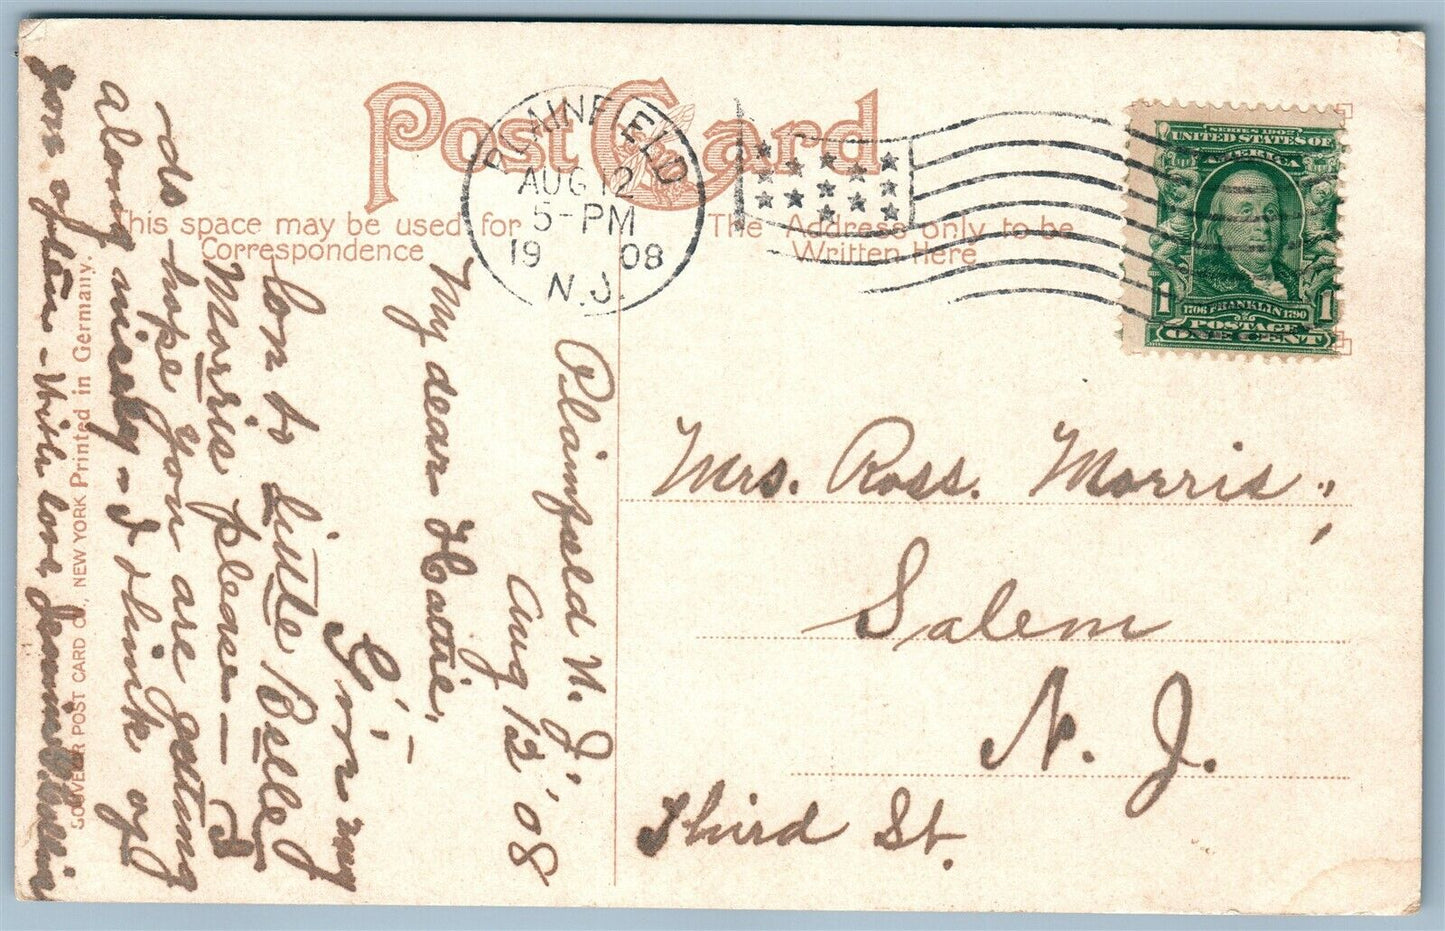 Post Card
This space may be used for
Correspondence
The Address only to be
Written Here
PLAINFIELD
AUG 12
5-PM
1908
N.J.
SERIES 1902
UNITED STATES OF
AMERICA
1 1706 FRANKLIN 1790 1
POSTAGE
ONE CENT
Mrs. Ross. Morris,
Salem
N. J.
Third St.
Plainfield N. J.
Aug 12 '08
My dear Hattie, -
Give my
love to Little Belle
Morris please — I
do hope you are getting
along nicely - I think of
you often - With love Jennie
SOUVENIR POST CARD CO., NEW YORK Printed in Germany.